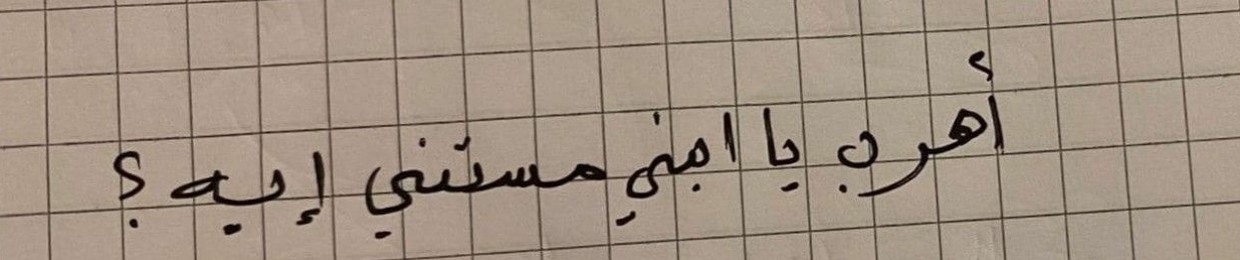 أهرب يا ابني مستني إيه ؟